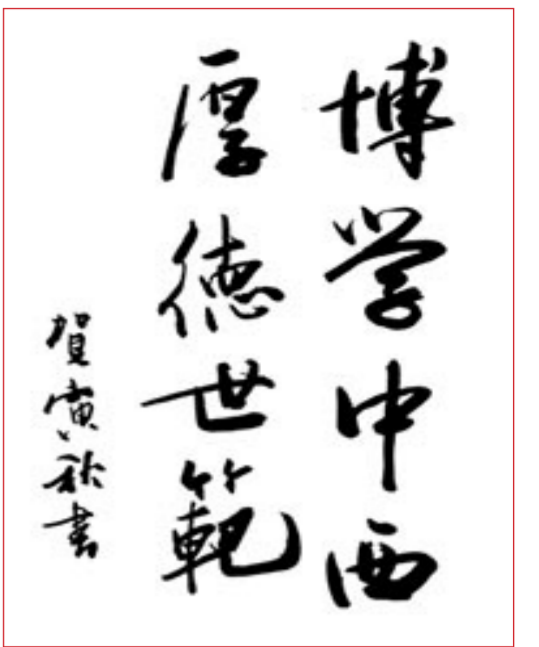 博学中西
厚德世範
賀寅秋書